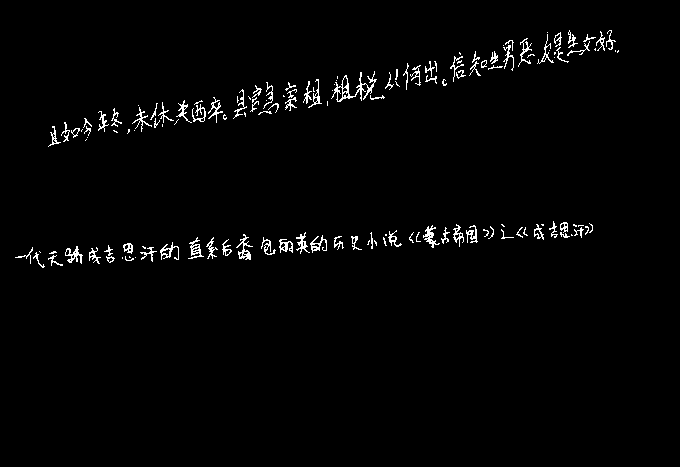 且如今年冬,未休关西卒。县官急索租,租税从何出。信知生男恶,反是生女好。
一代天骄成吉思汗的直系后裔包丽英的历史小说《蒙古帝国》之《成吉思汗》